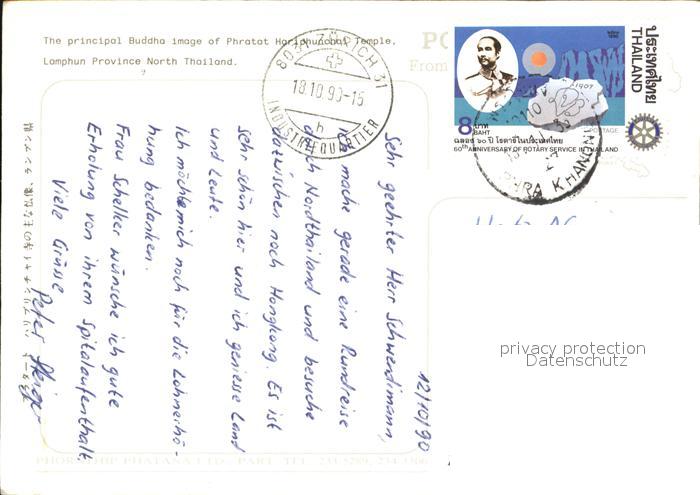 The principal Buddha image of Phratat Hariphunchai Temple,
Lamphun Province North Thailand.
PO
From
8031 ZÜRICH 31
18.10.90-15
h
INDUSTRIEQUARTIER
ประเทศไทย
THAILAND
1907
8 บาท
BAHT
POSTAGE
ฉลอง ๖๐ ปี โรตารีในประเทศไทย
60th ANNIVERSARY OF ROTARY SERVICE IN THAILAND
PHRA KHANONG
12/10/90
Sehr geehrter Herr Schwendimann,
Ich mache gerade eine Rundreise
durch Nordthailand und besuche
dazwischen noch Hongkong. Es ist
sehr schön hier und ich geniesse Land
und Leute.
Ich möchte mich noch für die Lohnerhö-
hung bedanken.
Frau Schelker wünsche ich gute
Erholung von ihrem Spitalaufenthalt
Viele Grüsse
Peter
PHORNTHIP PHATANA LTD., PART. TEL. 233-5289, 234-3306
privacy protection
Datenschutz